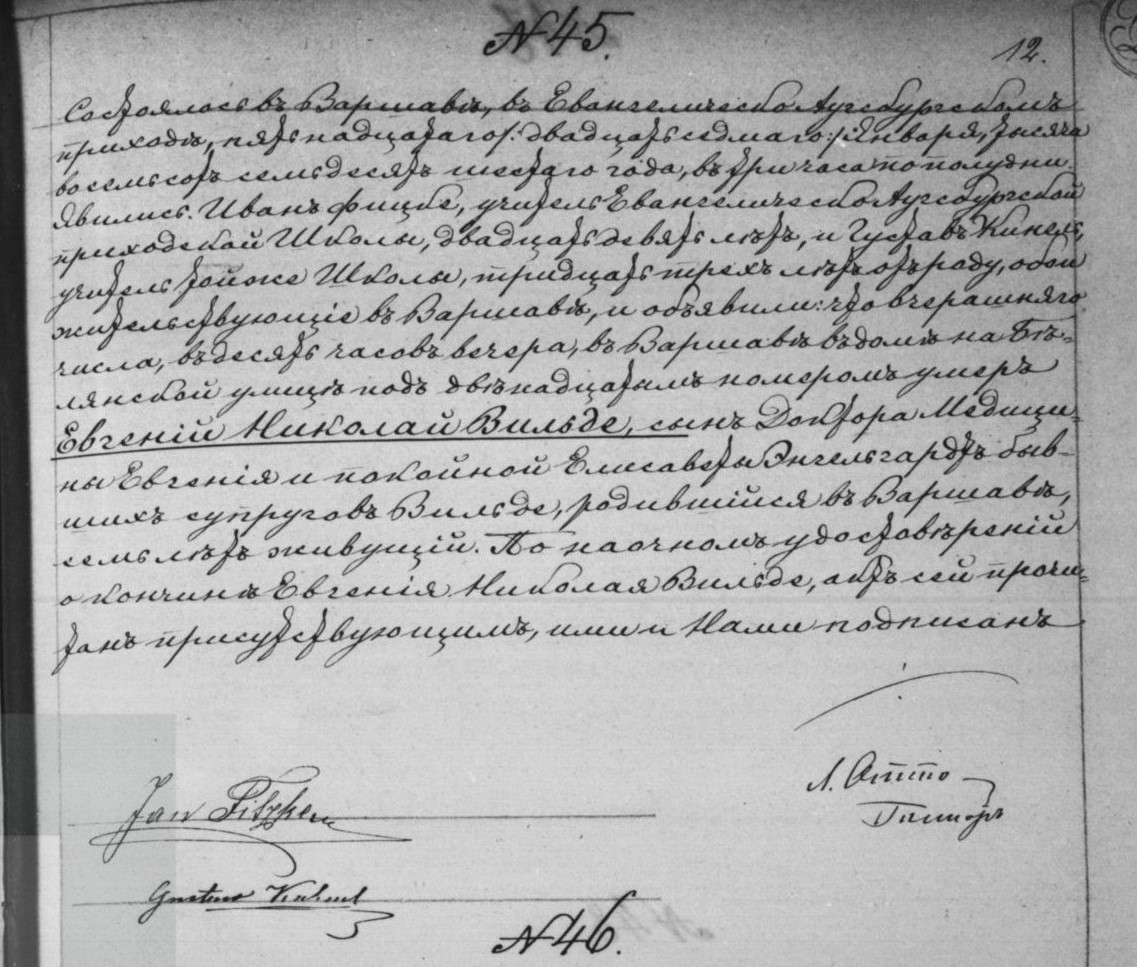 N 45.
12.
Состоялось въ Варшавѣ, въ Евангелическо Аугсбургскомъ
приходѣ, пятьнадцатаго /:двадцать седмаго:/ Января, тысяча
восемьсотъ семьдесятъ шестаго года, въ три часа по полудни.
Явились. Иванъ Фицке, учитель Евангелическо Аугсбургской
приходской Школы, двадцать девять лѣтъ, и Густавъ Кинель,
учитель тойже Школы, тридцать трехъ лѣтъ отъ роду, обои
жительствующіе въ Варшавѣ, и объявили: что вчерашняго
числа, въ десять часовъ вечера, въ Варшавѣ въ домѣ на Бѣ-
лянской улицѣ подъ двѣнадцатымъ номеромъ умеръ
Евгеній Николай Вильде, сынъ Доктора Медици-
ны Евгенія и покойной Елисаветы Энгельгардтъ быв-
шихъ супруговъ Вильде, родившійся въ Варшавѣ,
семь лѣтъ живущій. По наочномъ удостовѣреній
о кончинѣ Евгенія Николая Вильде, актъ сей прочи-
танъ присутствующимъ, ими и Нами подписанъ
Л. Отто
Пасторъ
Jan Fitzke
Gustaw
N 46.